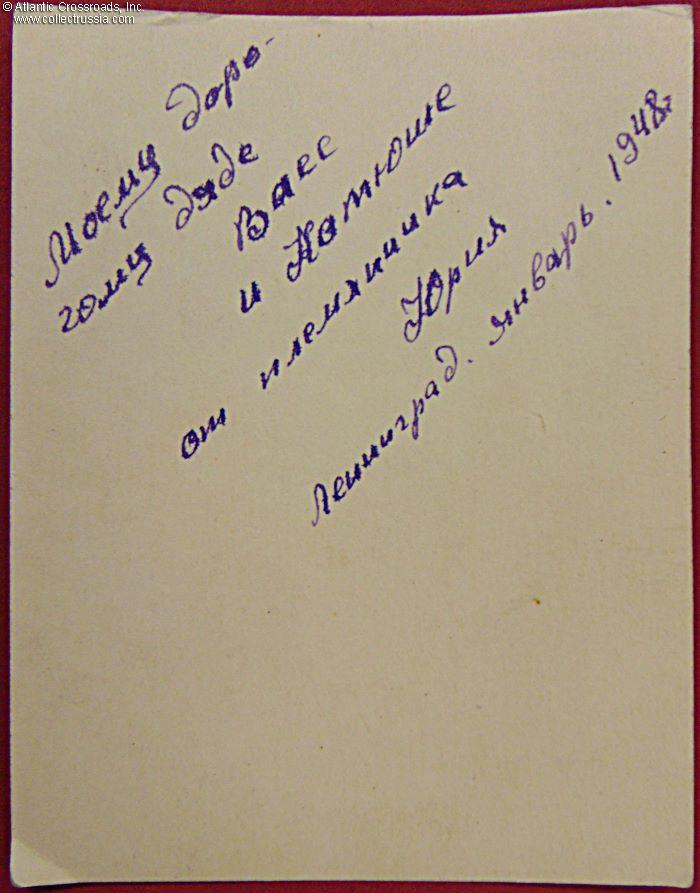 © Atlantic Crossroads, Inc.
www.collectrussia.com
Моему доро-
гому дяде
Васе
и Катюше
от племянника
Юрия
Ленинград. январь. 1948г